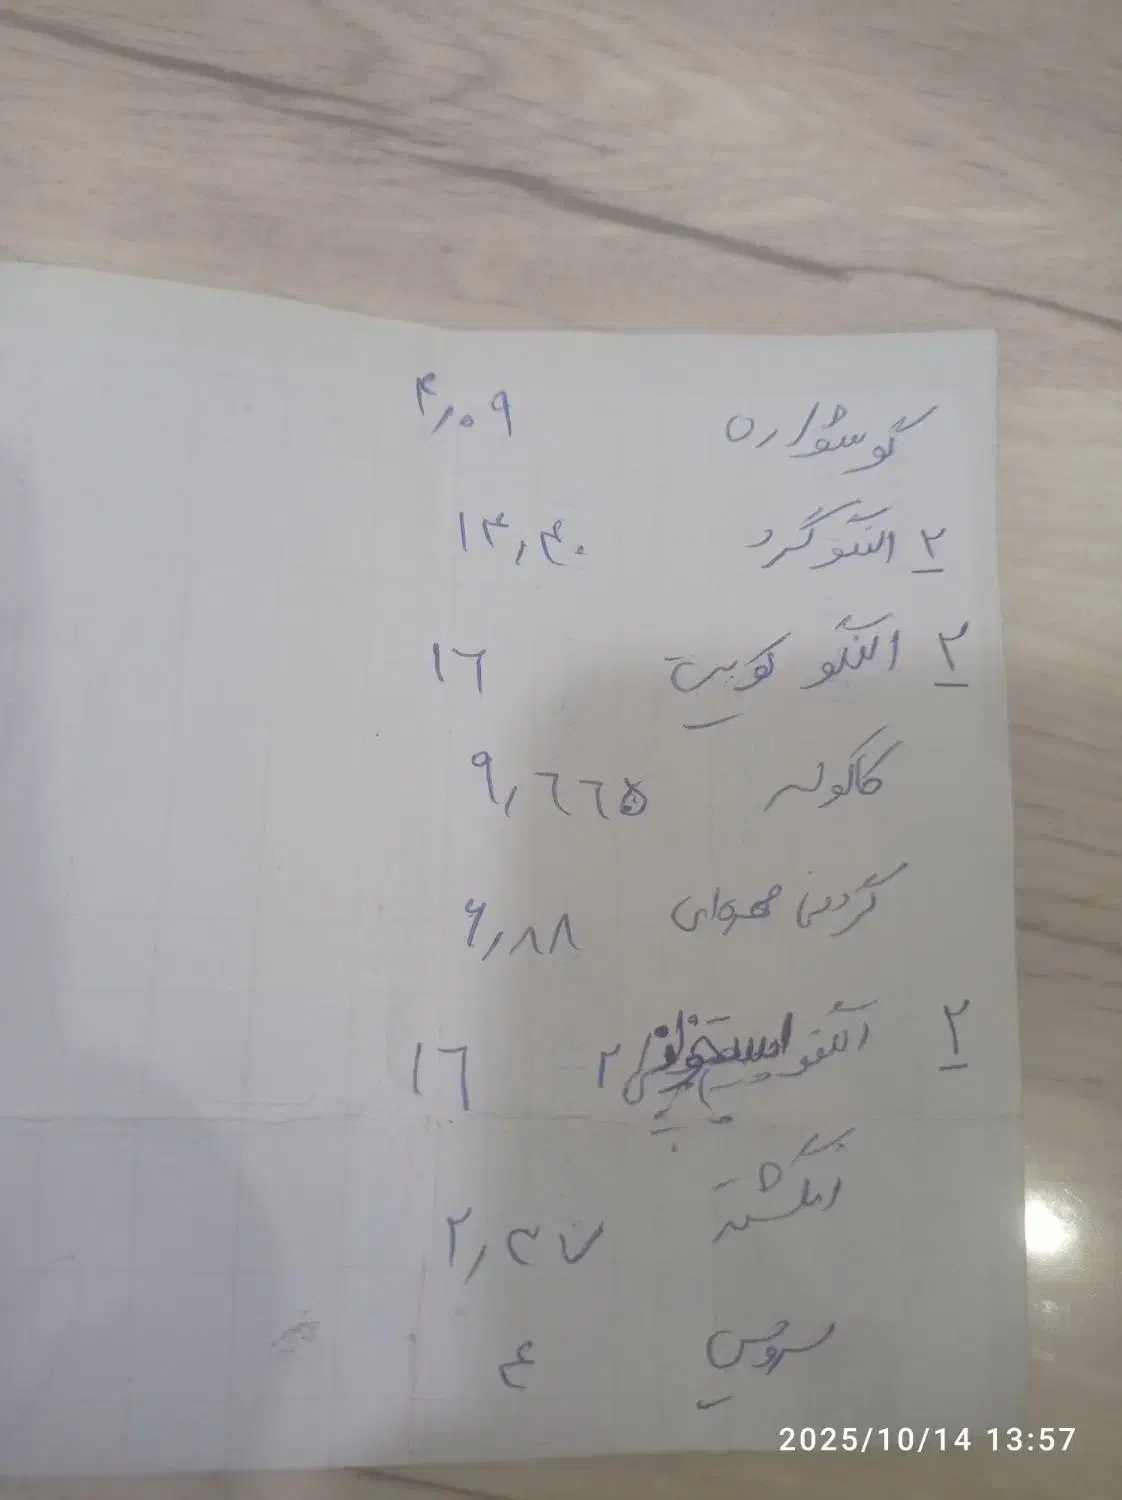 گوشواره ۴٫۰۹
۲ النگو گرد ۱۴٫۴۰
۲ النگو کویتی ۱۶
کاکوله ۹٫۶۶۵
گردنی مهره‌ای ۶٫۸۸
۲ النگو ۲ ۱۶
انگشتر ۲٫۳۷
سرویس ۴
2025/10/14 13:57